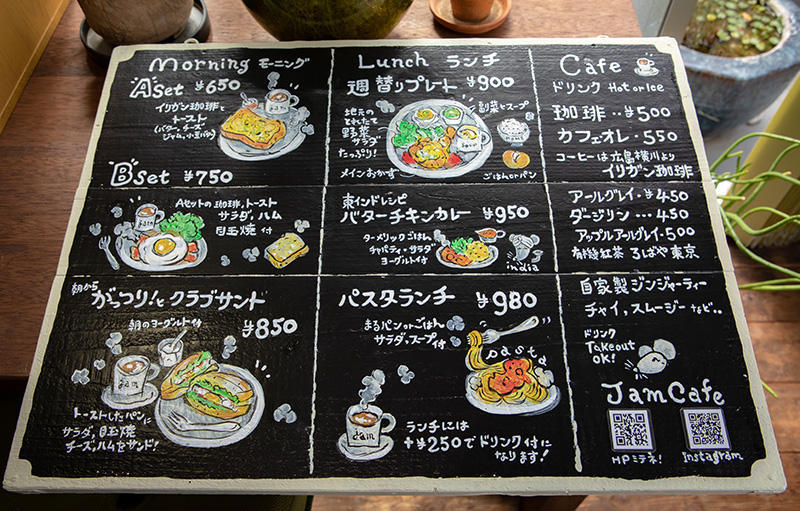 Morning モーニング
Aset ¥650
イリガン珈琲と
トースト
(バター、チーズ
ジャム,小豆バター)
jam
Bset ¥750
Aセットの珈琲,トースト
サラダ,ハム
目玉焼 付
jam
朝から
がっつり!と クラブサンド
朝のヨーグルト付
¥850
jam
トーストしたパンに
サラダ,目玉焼
チーズ,ハムをサンド!
Lunch ランチ
週替りプレート ¥900
地元の
とれたて
野菜
サラダ
たっぷり!
メインおかず
副菜とスープ
ごはんorパン
東インドレシピ
バターチキンカレー ¥950
ターメリックごはん
チャパティ・サラダ
ヨーグルト付
india
パスタランチ ¥980
まるパンorごはん
サラダ,スープ付
pasta
jam
ランチには
+¥250でドリンク付に
なります!
Cafe
ドリンク Hot or Ice
珈琲 ‥¥500
カフェオレ・550
コーヒーは広島横川より
イリガン珈琲
アールグレイ・¥450
ダージリン …450
アップルアールグレイ・500
有機紅茶 るぱや東京
自家製ジンジャーティー
チャイ,スムージーなど‥
ドリンク
Takeout
OK!
JamCafe
HPミテネ!
Instagram